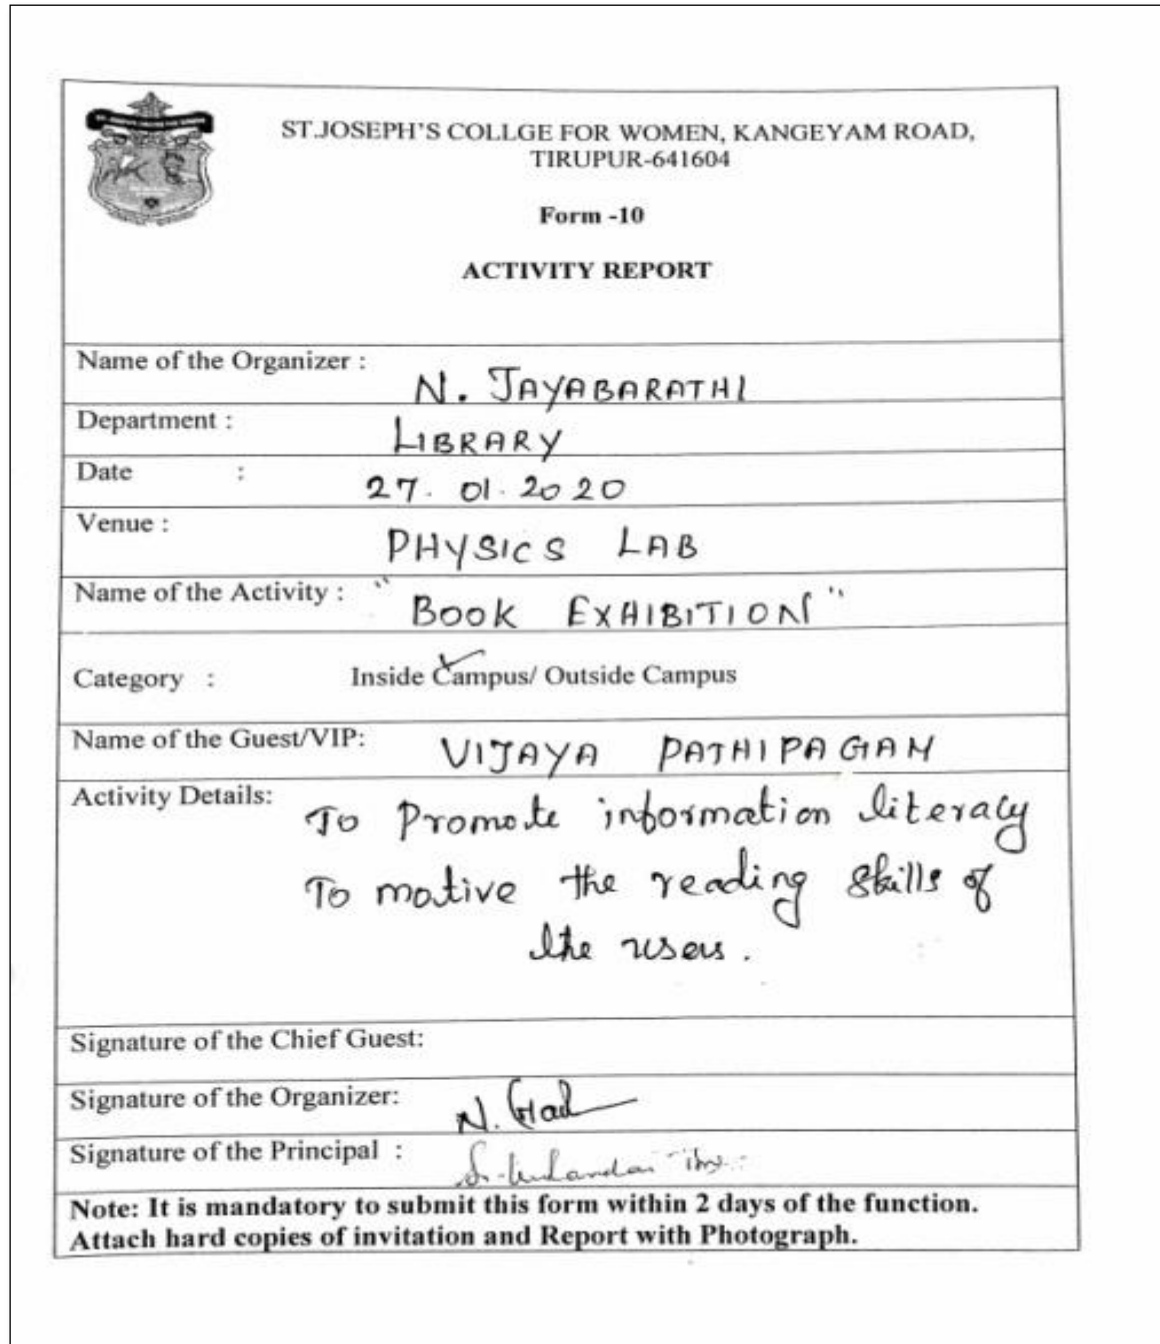 ST.JOSEPH'S COLLGE FOR WOMEN, KANGEYAM ROAD,
TIRUPUR-641604
Form -10
ACTIVITY REPORT
Name of the Organizer : N. JAYABARATHI
Department : LIBRARY
Date : 27. 01. 2020
Venue : PHYSICS LAB
Name of the Activity : "BOOK EXHIBITION"
Category : Inside Campus/ Outside Campus
Name of the Guest/VIP: VIJAYA PATHIPAGAM
Activity Details: To Promote information literacy
To motive the reading skills of
the users.
Signature of the Chief Guest:
Signature of the Organizer: N.
Signature of the Principal :
Note: It is mandatory to submit this form within 2 days of the function.
Attach hard copies of invitation and Report with Photograph.